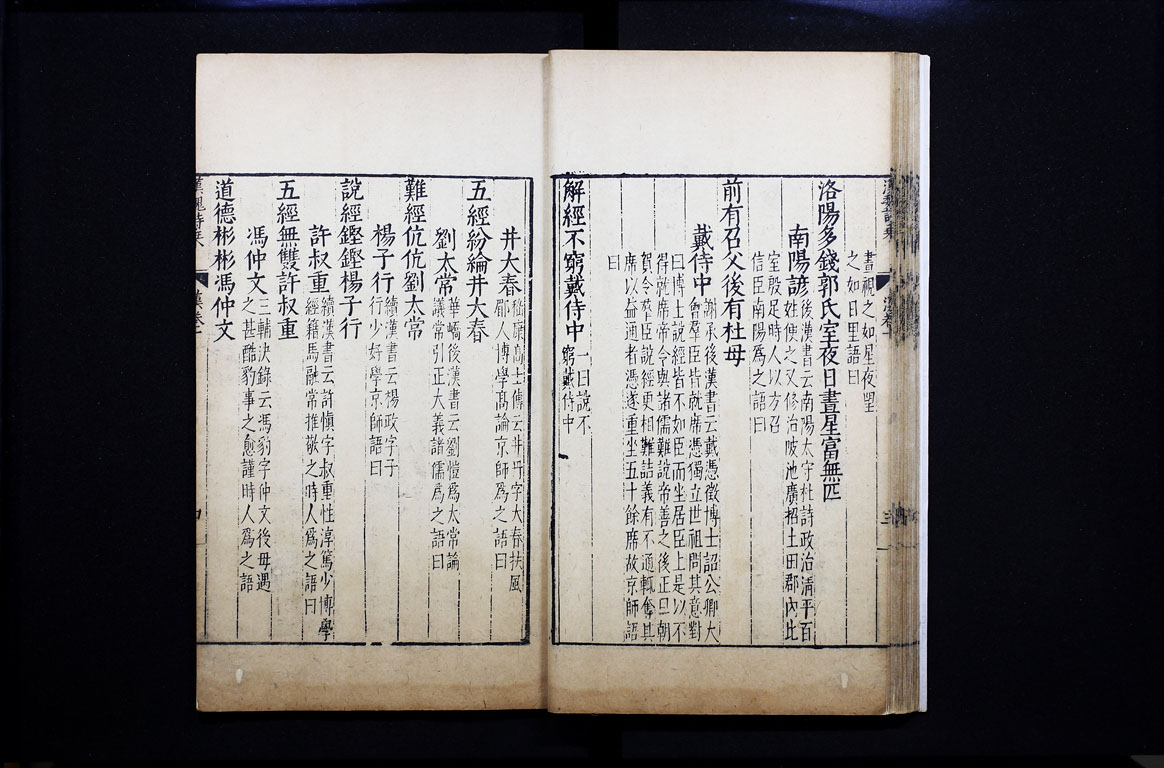 晝視之如星夜望
之如日里語曰
洛陽多錢郭氏室夜日晝星富無匹
南陽諺
後漢書云南陽太守杜詩政治清平百
姓便之又修治陂池廣招土田郡內比
室殷足時人以方召
信臣南陽爲之語曰
前有召父後有杜母
戴侍中
謝承後漢書云戴憑徵博士詔公卿大
會羣臣皆就席憑獨立世祖問其意對
曰博士說經皆不如臣而坐居臣上是以不
得就席帝令與諸儒難說帝善之後正旦朝
賀令羣臣說經更相難詰義有不通輒奪其
席以益通者憑遂重坐五十餘席故京師語
曰
解經不窮戴侍中
一曰說不
窮戴侍中
井大春
嵇康高士傳云井丹字大春扶風
郿人博學高論京師爲之語曰
五經紛綸井大春
劉太常
華嶠後漢書云劉愷爲太常論
議常引正大義諸儒爲之語曰
難經伉伉劉太常
楊子行
續漢書云楊政字子
行少好學京師語曰
說經鏗鏗楊子行
許叔重
續漢書云許慎字叔重性淳篤少博學
經籍馬融常推敬之時人爲之語曰
五經無雙許叔重
馮仲文
三輔決錄云馮豹字仲文後母遇
之甚酷豹事之愈謹時人爲之語
道德彬彬馮仲文